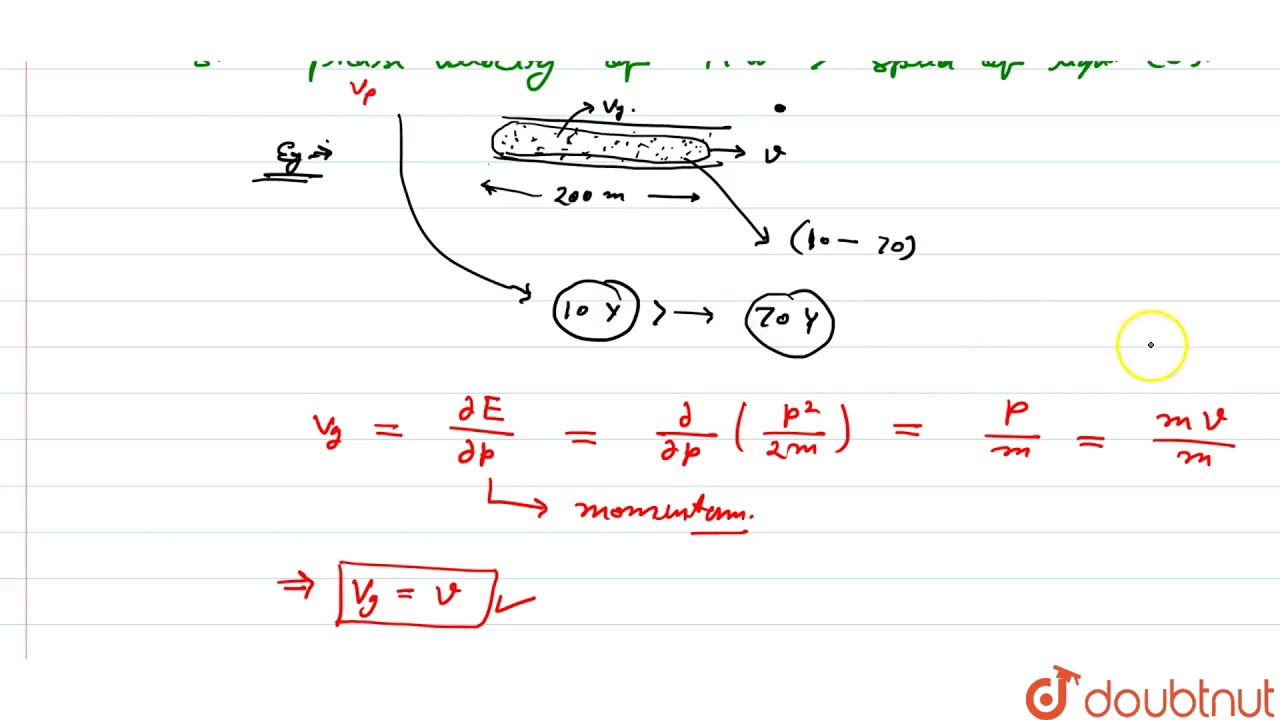 phase velocity of > speed of
vp
vg.
Eg →
v
200 m
(10 - 70)
10 Y > → 70 Y
vg = ∂E/∂p = ∂/∂p ( p²/2m ) = p/m = mv/m
momentum.
⇒ Vg = v ✓
doubtnut